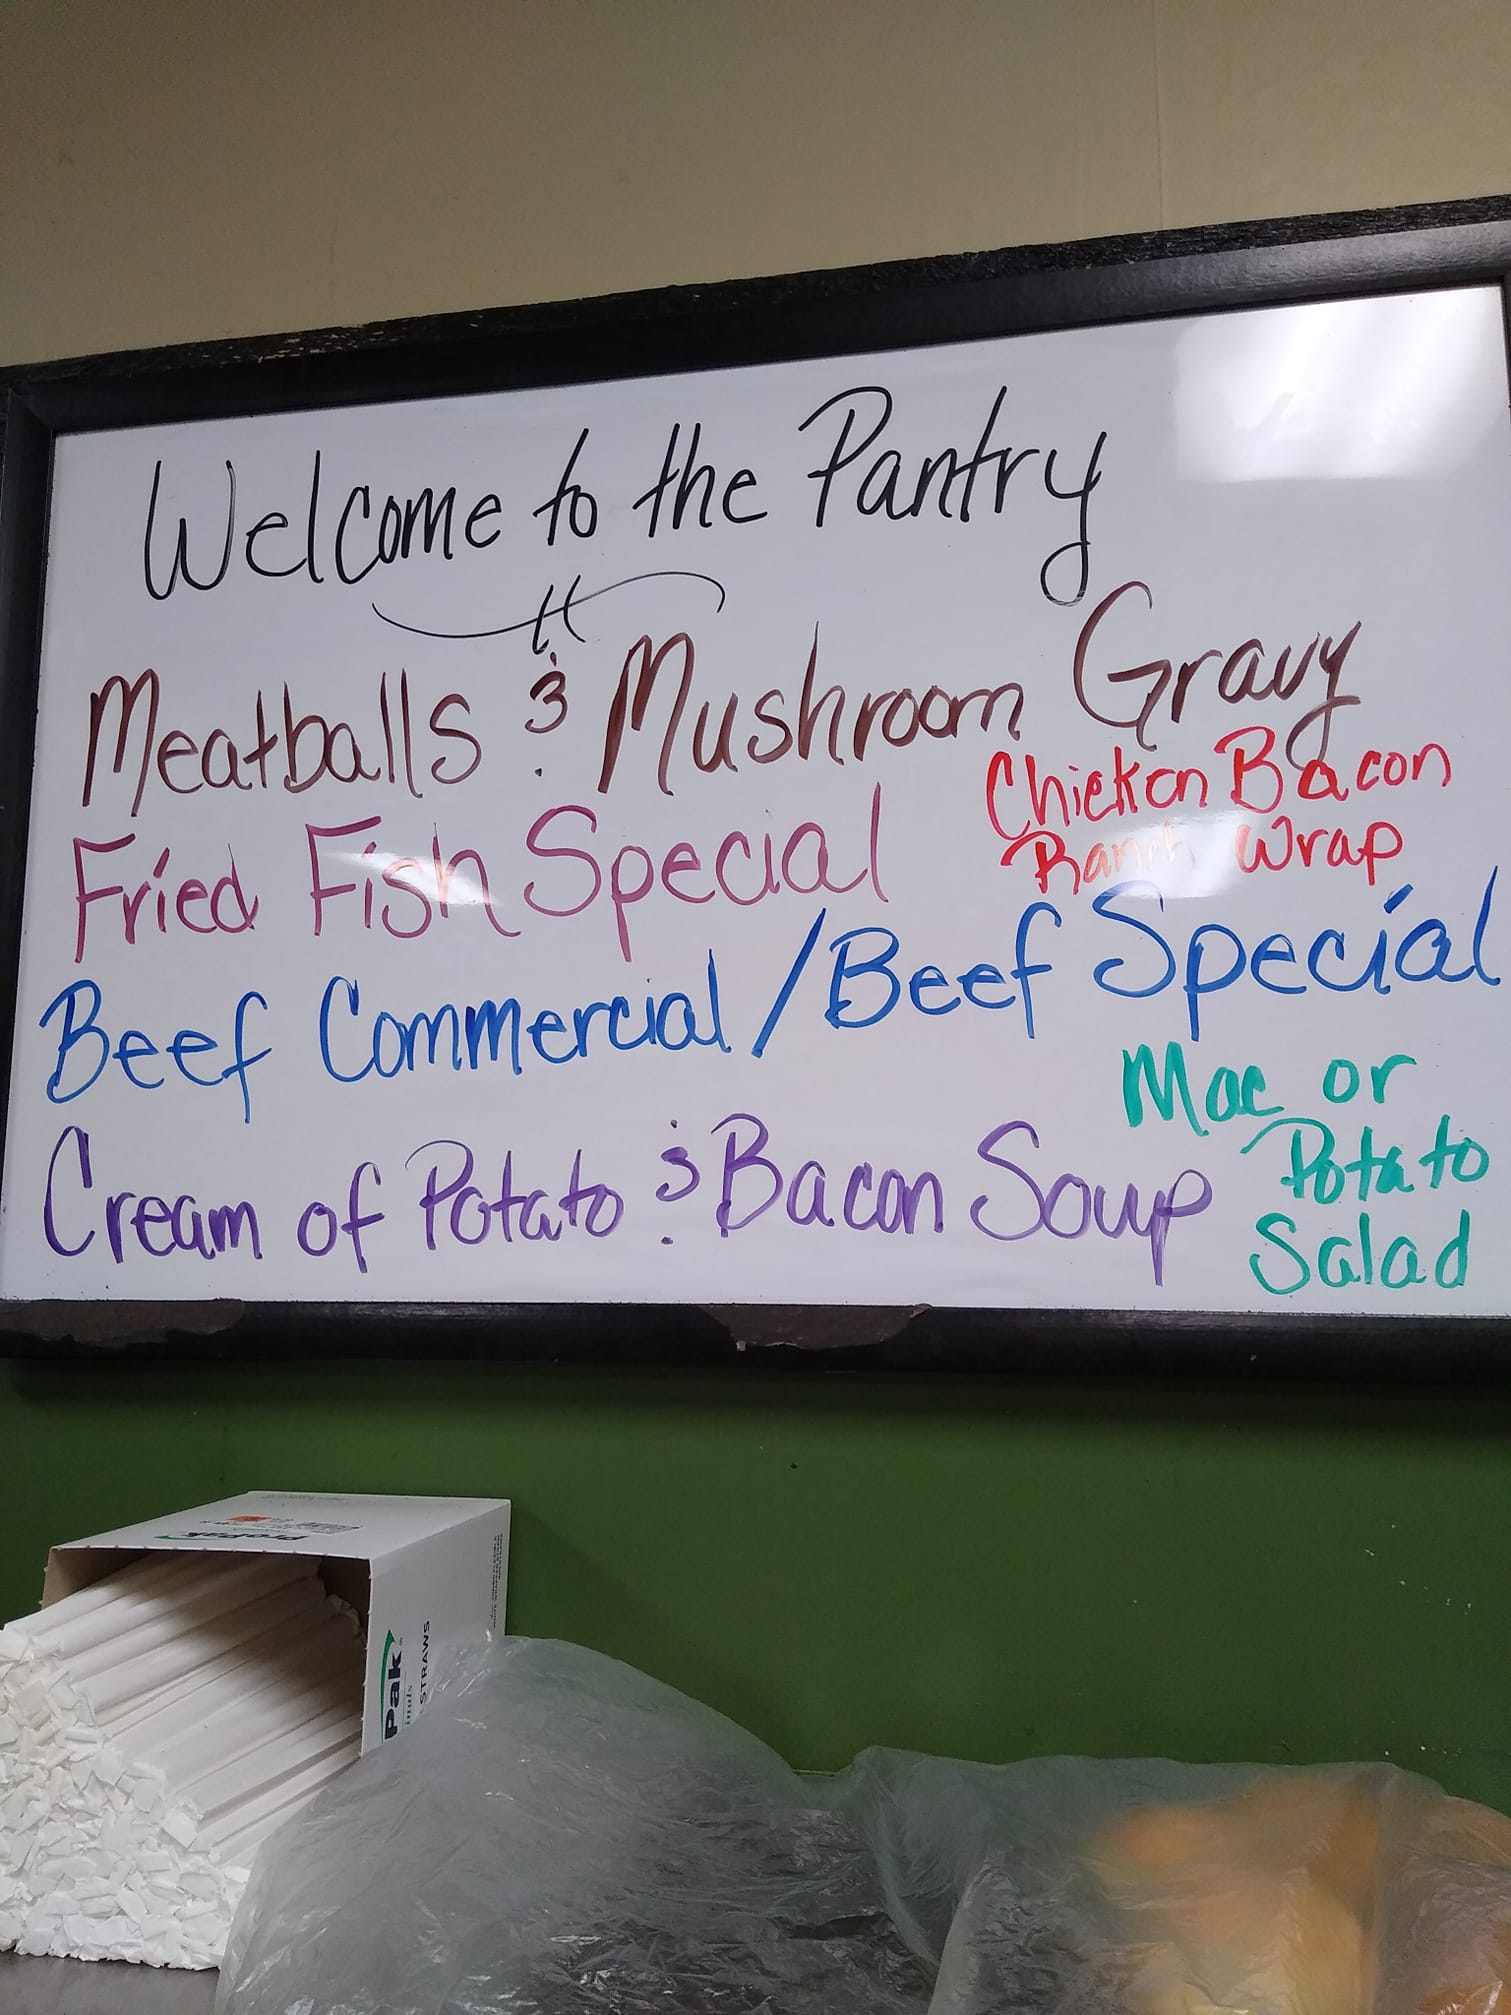 Welcome to the Pantry
Meatballs & Mushroom Gravy
Fried Fish Special
Chicken Bacon
Ranch Wrap
Beef Commercial / Beef Special
Mac or
Potato
Salad
Cream of Potato & Bacon Soup
ProPak
Pak
STRAWS